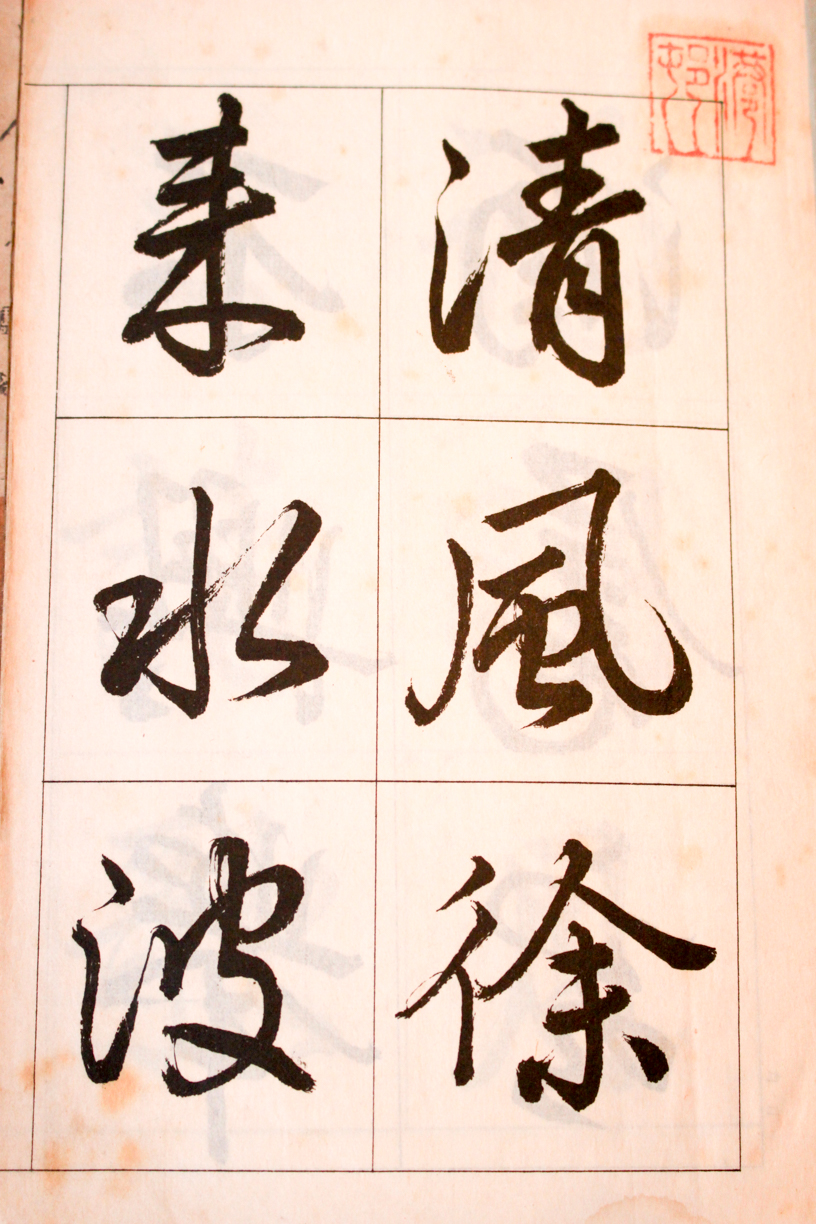 清風徐
来水波